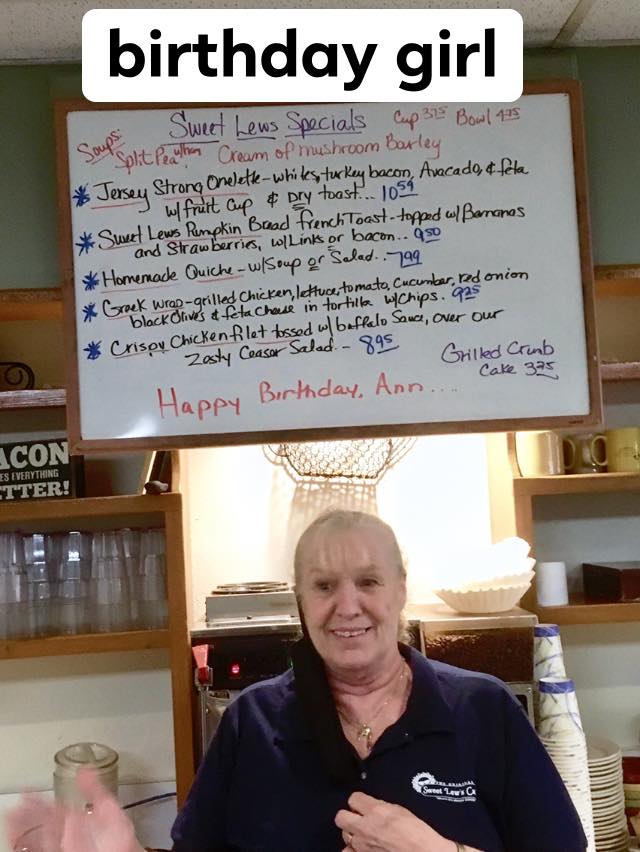 birthday girl
Sweet Lews Specials Cup 3.75 Bowl 4.75
Soups: Split Pea w/ham Cream of mushroom Barley
* Jersey Strong Omelette - whites, turkey bacon, Avacado, & feta
w/ fruit Cup & Dry toast... 10 59
* Sweet Lews Pumpkin Bread french Toast - topped w/ Bananas
and Strawberries, w/ Links or bacon.. 9 50
* Homemade Quiche - w/ Soup or Salad.. 7 99
* Greek wrap - grilled Chicken, lettuce, tomato, Cucumber, red onion
black Olives & feta Cheese in tortilla w/ Chips. 9 25
* Crispy Chicken filet tossed w/ buffalo Sauce, over our
Zesty Ceasar Salad.- 8 95
Grilled Crumb
Cake 3 75
Happy Birthday, Ann....
ACON
ES EVERYTHING
ETTER!
THE ORIGINAL
Sweet Lew's